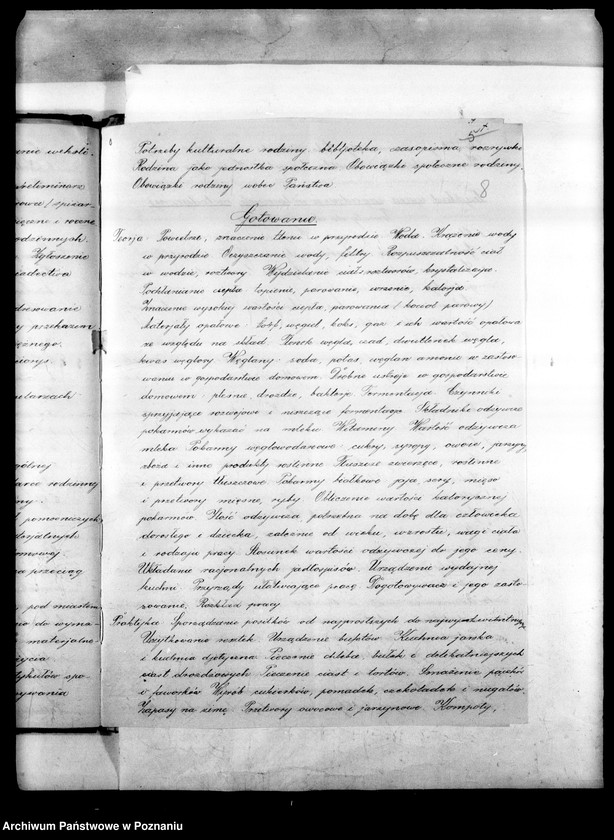 enie wekslе.
Preliminarz
ięczne i roczne
rodzinnych.
Zgłoszenie
iadectwa
dresowanie
y przekazem
ącznego.
elarzach
gólny
arce rodzinnej
ny.
pomocniczych
ocjalnych.
omowej.
na przeciąg
pod miastem
materjalne
życia
ywania
Potrzeby kulturalne rodziny biblioteka, czasopisma, rozrywki
Rodzina jako jednostka społeczna Obowiązki społeczne rodziny.
Obowiązki rodziny wobec Państwa
8
Gotowanie.
Teorja: Powietrze, znaczenie tlenu w przyrodzie Woda. Krążenie wody
w przyrodzie Oczyszczanie wody, filtry Rozpuszczalność ciał
w wodzie, roztwory Wydzielanie ciał z roztworów, krystalizacja.
Pochłanianie ciepła topienie, parowanie, wrzenie, kalorja.
Znaczenie wysokiej wartości ciepła, parowania (kocioł parowy)
Materjały opałowe torf, węgiel, koks, gaz i ich wartość opałowa
ze względu na skład. Tlenek węgla, czad, dwutlenek węgla,
kwas węglowy Węglany soda, potas, węglan amonu w zastoso-
waniu w gospodarstwie domowem. Drobne ustroje w gospodarstwie
domowem pleśnie, drożdże, bakterje Fermentacja Czynniki
sprzyjające rozwojowe i niszczące fermentację Składniki odżywcze
pokarmów wykazać na mleku Witaminy Wartość odżywcza
mleka Pokarmy węglowodanowe cukry, syropy, owoce, jarzyny,
zboża i inne produkty roślinne Tłuszcze zwierzęce, roślinne
i przetwory tłuszczowe Pokarmy białkowe jaja sery, mięso
i przetwory mięsne, ryby Obliczenie wartości kalorycznej
pokarmów. Ilość odżywcza, potrzebna na dobę dla człowieka
dorosłego i dziecka, zależnie od wieku, wzrostu, wagi ciała
i rodzaju pracy Stosunek wartości odżywczej do jego ceny.
Układanie racjonalnych jadłospisów. Urządzenie wydajnej
kuchni Przyrządy ułatwiające pracę. Dogotowywacz i jego zasto-
sowanie, Rozkład pracy
Praktyka Sporządzanie posiłków od najprostszych do najwykwintniejszych
Użytkowanie resztek Urządzenie bufetów Kuchnia jarska
i kuchnia djetyczna Pieczenie chleba, bułek i delikatniejszych
ciast drożdżowych Pieczenie ciast i tortów. Smażenie pączków
i faworków Wyrób cukierków, pomadek, czekoladek i nugatów.
Zapasy na zimę Przetwory owocowe i jarzynowe. Kompoty,
Archiwum Państwowe w Poznaniu